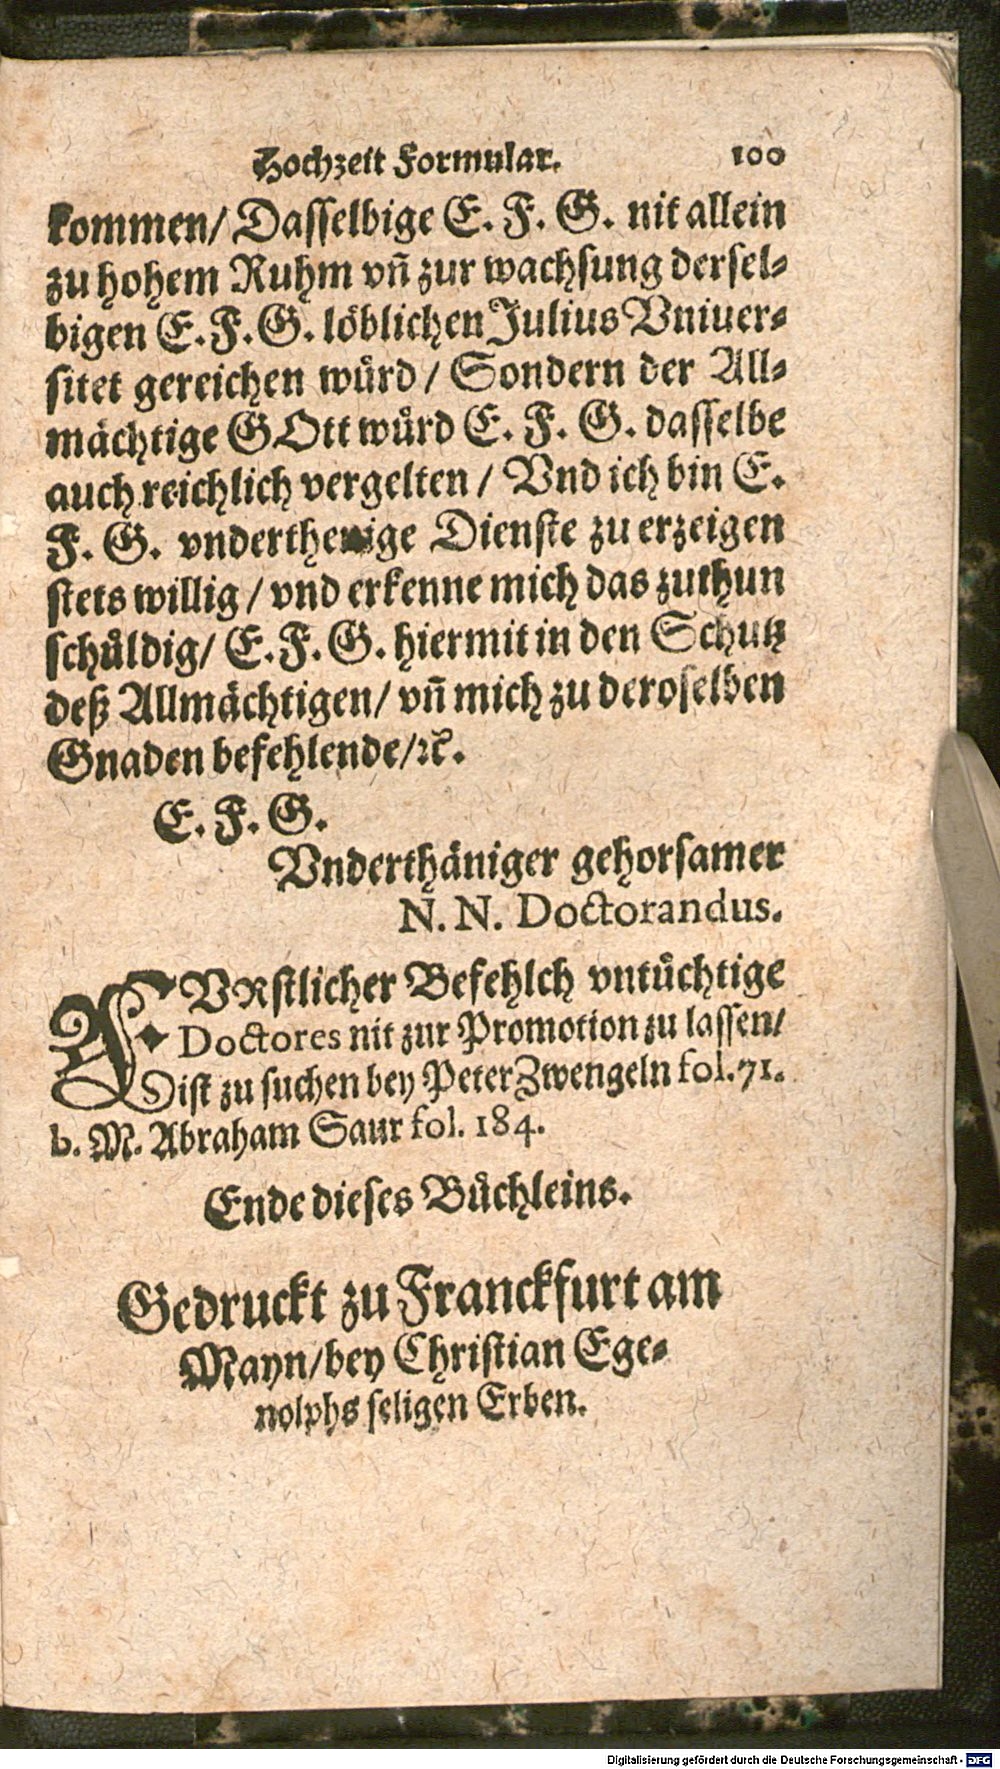 Hochzeit Formular. 100
kommen/ Dasselbige E. F. G. nit allein
zu hohem Ruhm vn̄ zur wachsung dersel-
bigen E. F. G. löblichen Julius Vniuer-
sitet gereichen wuͤrd / Sondern der All-
mächtige GOtt wuͤrd E. F. G. dasselbe
auch reichlich vergelten / Vnd ich bin E.
F. G. vnderthenige Dienste zu erzeigen
stets willig / vnd erkenne mich das zuthun
schuͤldig/ E. F. G. hiermit in den Schutz
deß Allmächtigen/ vn̄ mich zu deroselben
Gnaden befehlende/ꝛc.
E. F. G.
Vnderthäniger gehorsamer
N. N. Doctorandus.
FVRstlicher Befehlch vntuͤchtige
Doctores nit zur Promotion zu lassen/
ist zu suchen bey Peter Zwengeln fol. 71.
b. M. Abraham Saur fol. 184.
Ende dieses Buͤchleins.
Gedruckt zu Franckfurt am
Mayn/bey Christian Ege-
nolphs seligen Erben.
Digitalisierung gefördert durch die Deutsche Forschungsgemeinschaft - DFG